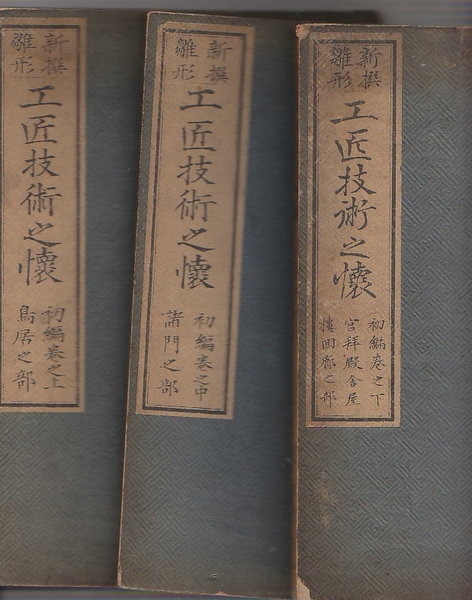 新撰
雛形
工匠技術之懷
初編卷之上
鳥居之部
新撰
雛形
工匠技術之懷
初編卷之中
諸門之部
新撰
雛形
工匠技術之懷
初編卷之下
宮拝殿舎屋
樓回廊之部